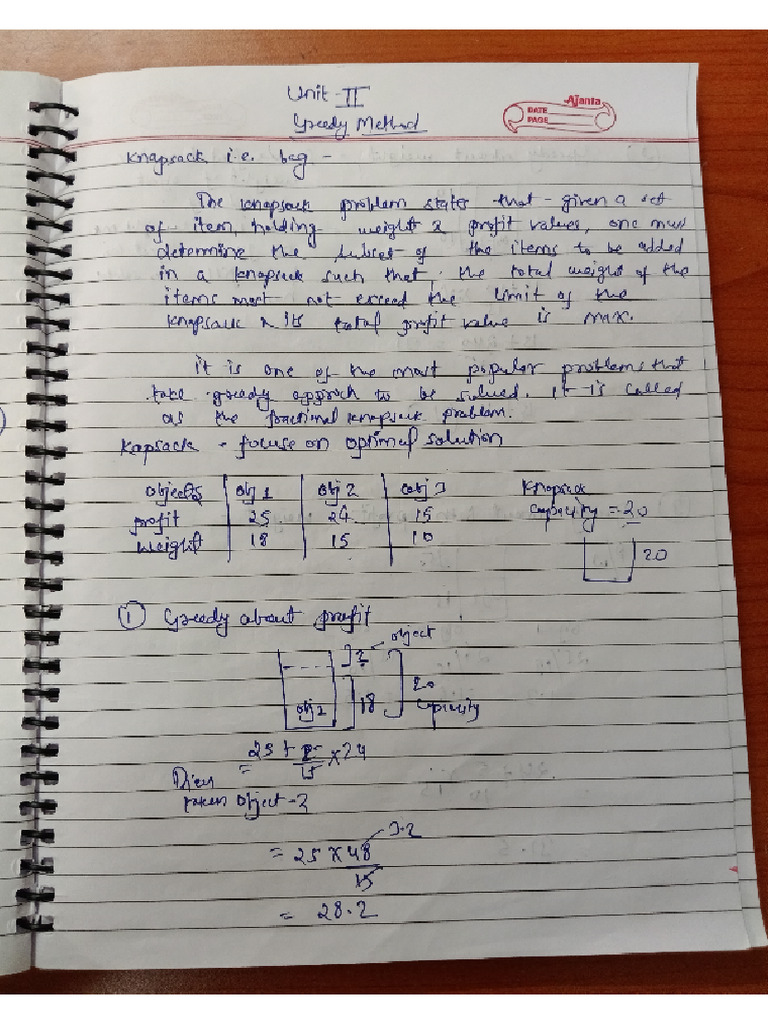 Unit - II
Greedy Method
Ajanta
DATE
PAGE
Knapsack i.e. bag -
The knapsack problem states that - given a set
of item, holding weight & profit values, one must
determine the subset of the items to be added
in a knapsack such that, the total weight of the
items must not exceed the limit of the
knapsack & its total profit value is max.
it is one of the most popular problems that
take greedy approch to be solved. it is called
as the fractional knapsack problem.
Kapsack - focuse on optimal solution
objects obj 1 obj 2 obj 3
profit 25 24 15
weight 18 15 10
Knapsack
capacity = 20
20
① Greedy about profit
object
2
20
obj 1 18 capacity
= 25 + 2/15 × 24
taken object - 2
3.2
= 25 × 48/15
= 28.2